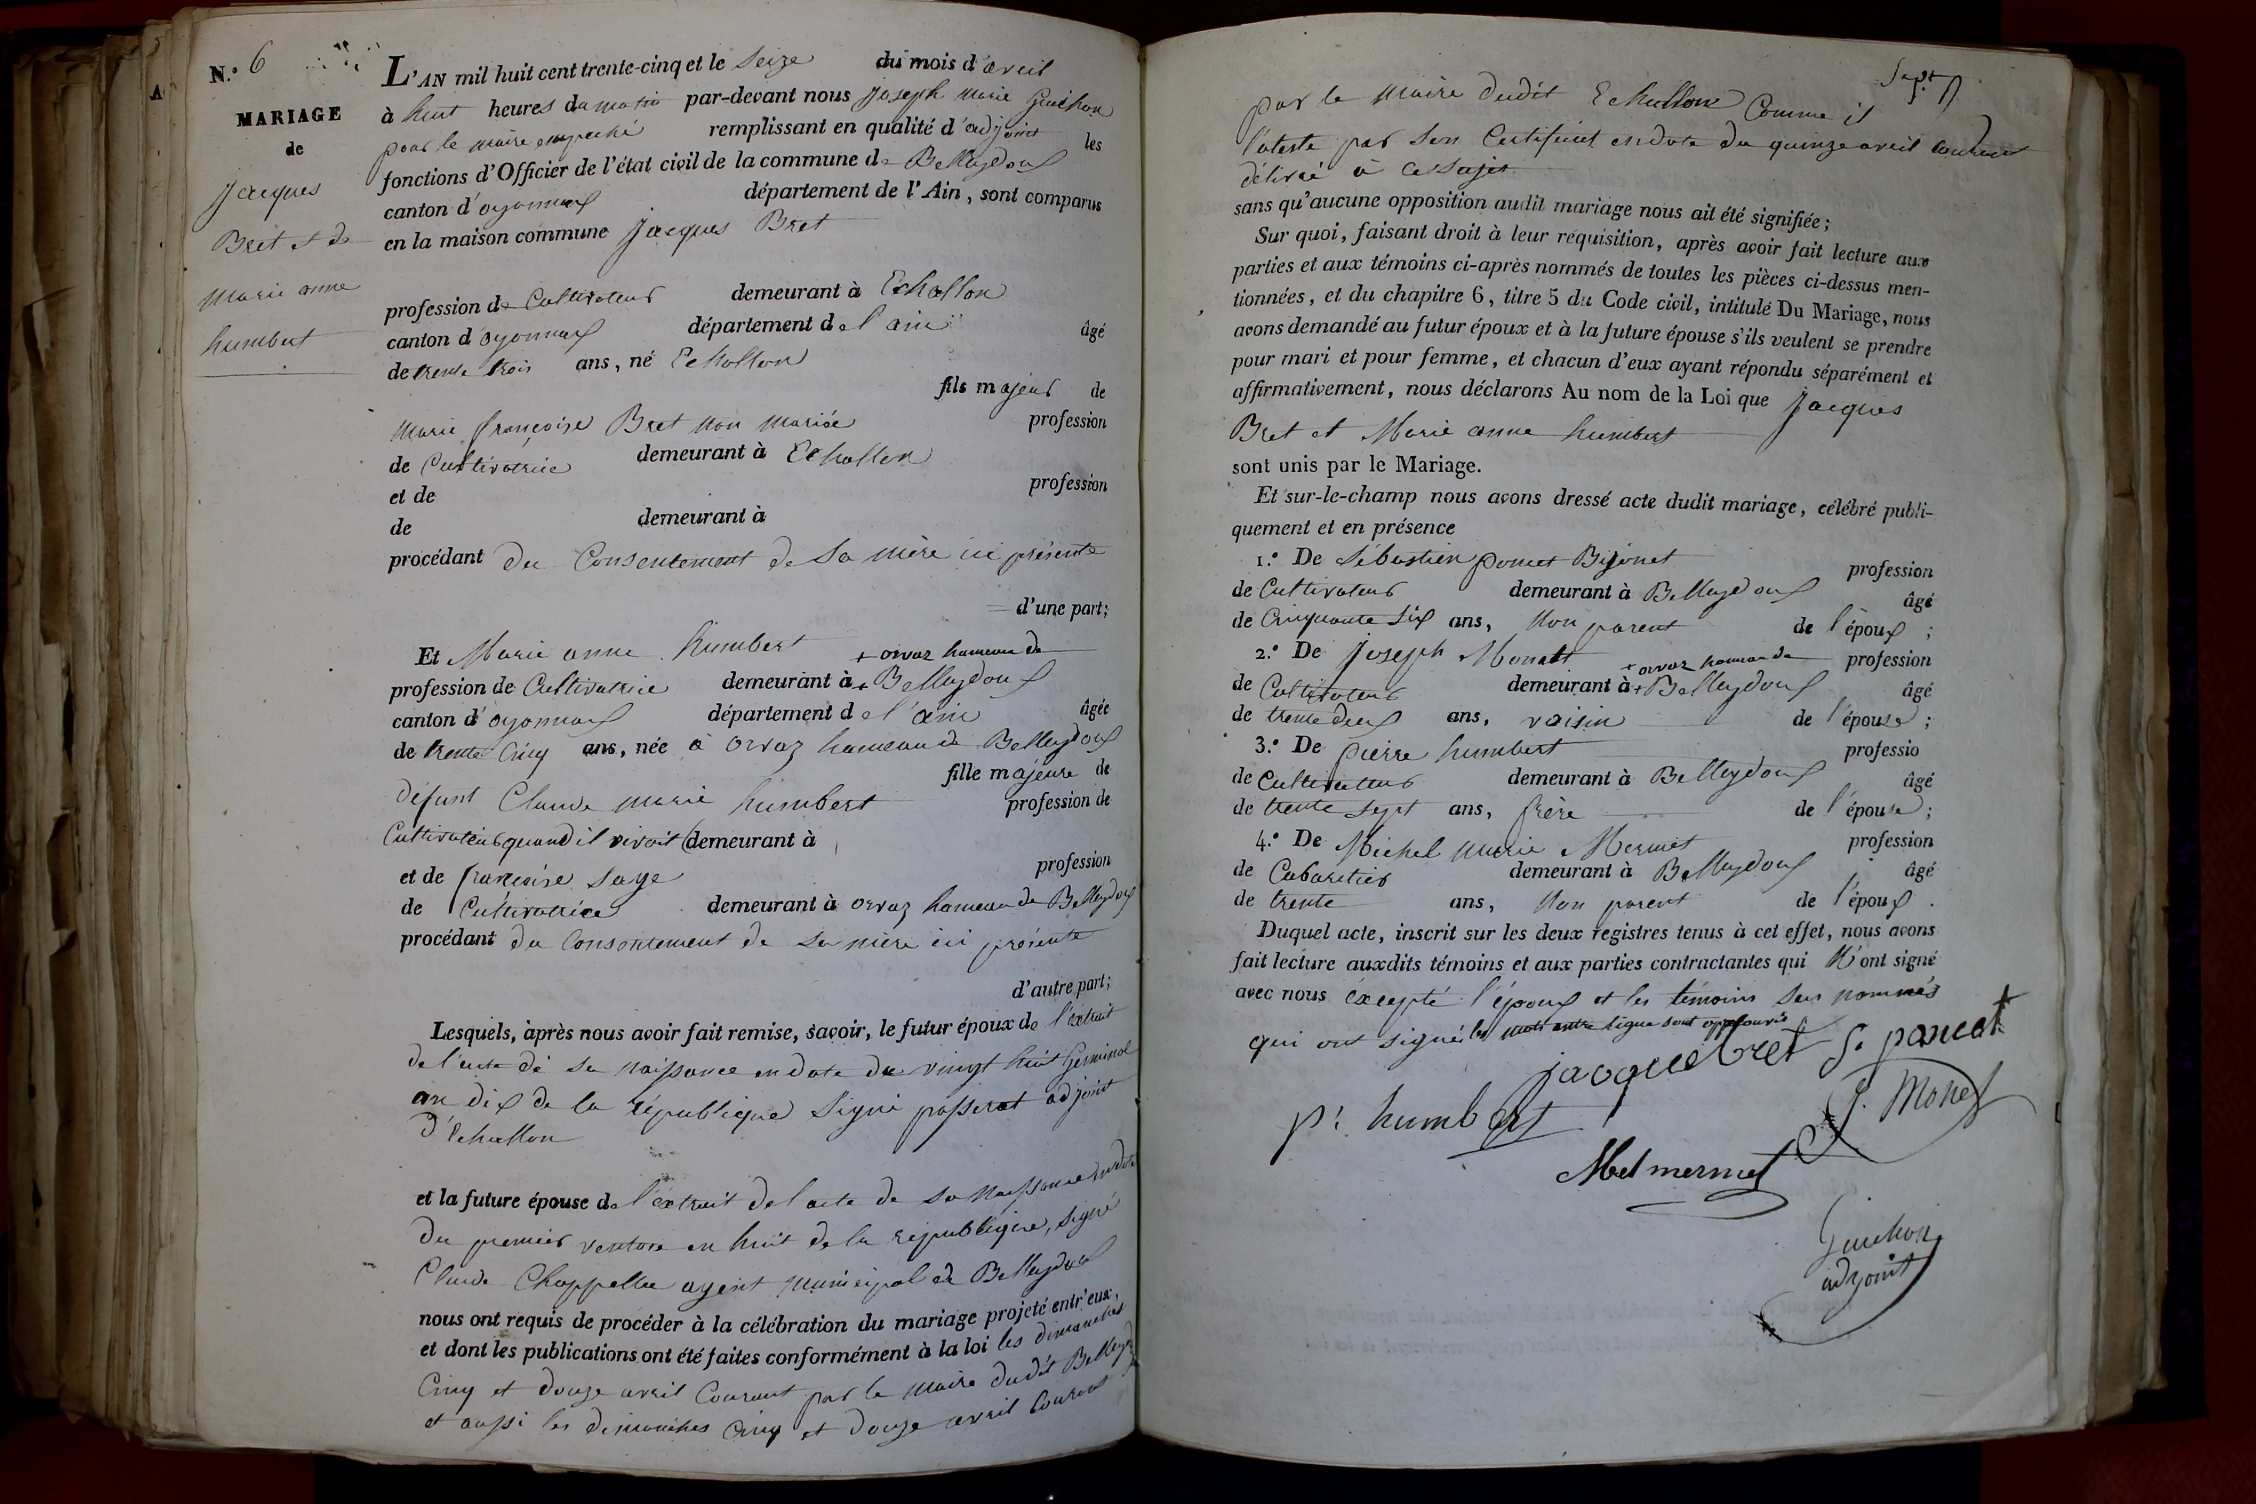 N.° 6
MARIAGE
de
Jacques
Bret et de
Marie anne
humbert
L'AN mil huit cent trente-cinq et le Seize du mois d'avril
à huit heures du matin par-devant nous Joseph Marie Guichon
pour le maire empeché remplissant en qualité d'adjoint les
fonctions d'Officier de l'état civil de la commune de Belleydoux
canton d'oyonnax département de l'Ain, sont comparus
en la maison commune Jacques Bret
profession de Cultivateur demeurant à Echallon
canton d'oyonnax département de l'ain âgé
de trente trois ans, né Echallon
fils majeur de
Marie françoise Bret non mariée profession
de Cultivatrice demeurant à Echallon
et de profession
de demeurant à
procédant du Consentement de Sa mère ici présente
d'une part;
Et Marie anne humbert + orvaz hameau de
profession de Cultivatrice demeurant à + Belleydoux
canton d'oyonnax département de l'ain âgée
de trente Cinq ans, née à orvaz hameau de Belleydoux
fille majeure de
défunt Claude marie humbert profession de
Cultivateur quand il vivait demeurant à
et de françoise Saye profession
de Cultivatrice demeurant à orvaz hameau de Belleydoux
procédant du Consentement de Sa mère ici présente
d'autre part;
Lesquels, après nous avoir fait remise, savoir, le futur époux de l'extrait
de l'acte de sa naissance en date du vingt huit Germinal
an dix de la république Signé passerat adjoint
d'Echallon
et la future épouse de l'extrait de l'acte de sa naissance en date
du premier ventose an huit de la république, signé
Claude Chappellu agent municipal de Belleydoux
nous ont requis de procéder à la célébration du mariage projeté entr'eux,
et dont les publications ont été faites conformément à la loi les dimanches
Cinq et douze avril Courant par le maire dudit Belleydoux
et aussi les dimanches Cinq et douze avril Courant
Sept
par le maire dudit Echallon Comme il
l'ateste par son Certificat en date du quinze avril courant
délivré à ce sujet
sans qu'aucune opposition audit mariage nous ait été signifiée;
Sur quoi, faisant droit à leur réquisition, après avoir fait lecture aux
parties et aux témoins ci-après nommés de toutes les pièces ci-dessus men-
tionnées, et du chapitre 6, titre 5 du Code civil, intitulé Du Mariage, nous
avons demandé au futur époux et à la future épouse s'ils veulent se prendre
pour mari et pour femme, et chacun d'eux ayant répondu séparément et
affirmativement, nous déclarons Au nom de la Loi que Jacques
Bret et Marie anne humbert
sont unis par le Mariage.
Et sur-le-champ nous avons dressé acte dudit mariage, célébré publi-
quement et en présence
1.° De Sébastien poncet Bijonet profession
de Cultivateur demeurant à Belleydoux âgé
de Cinquante Six ans, Non parent de l'époux ;
2.° De Joseph Monet + orvaz hameau de profession
de Cultivateur demeurant à + Belleydoux âgé
de trente deux ans, voisin de l'épouse ;
3.° De pierre humbert professio
de Cultivateur demeurant à Belleydoux âgé
de trente sept ans, frère de l'épouse ;
4.° De Michel Marie Mermet profession
de Cabaretier demeurant à Belleydoux âgé
de trente ans, Non parent de l'époux .
Duquel acte, inscrit sur les deux registres tenus à cet effet, nous avons
fait lecture auxdits témoins et aux parties contractantes qui N'ont signé
avec nous excepté l'époux et les témoins sus nommés
qui ont signé les mots entre ligne sont approuvés
jacque bret S. poncet
p: humbert J. Monet
Mel mermet
Guichon
adjoint